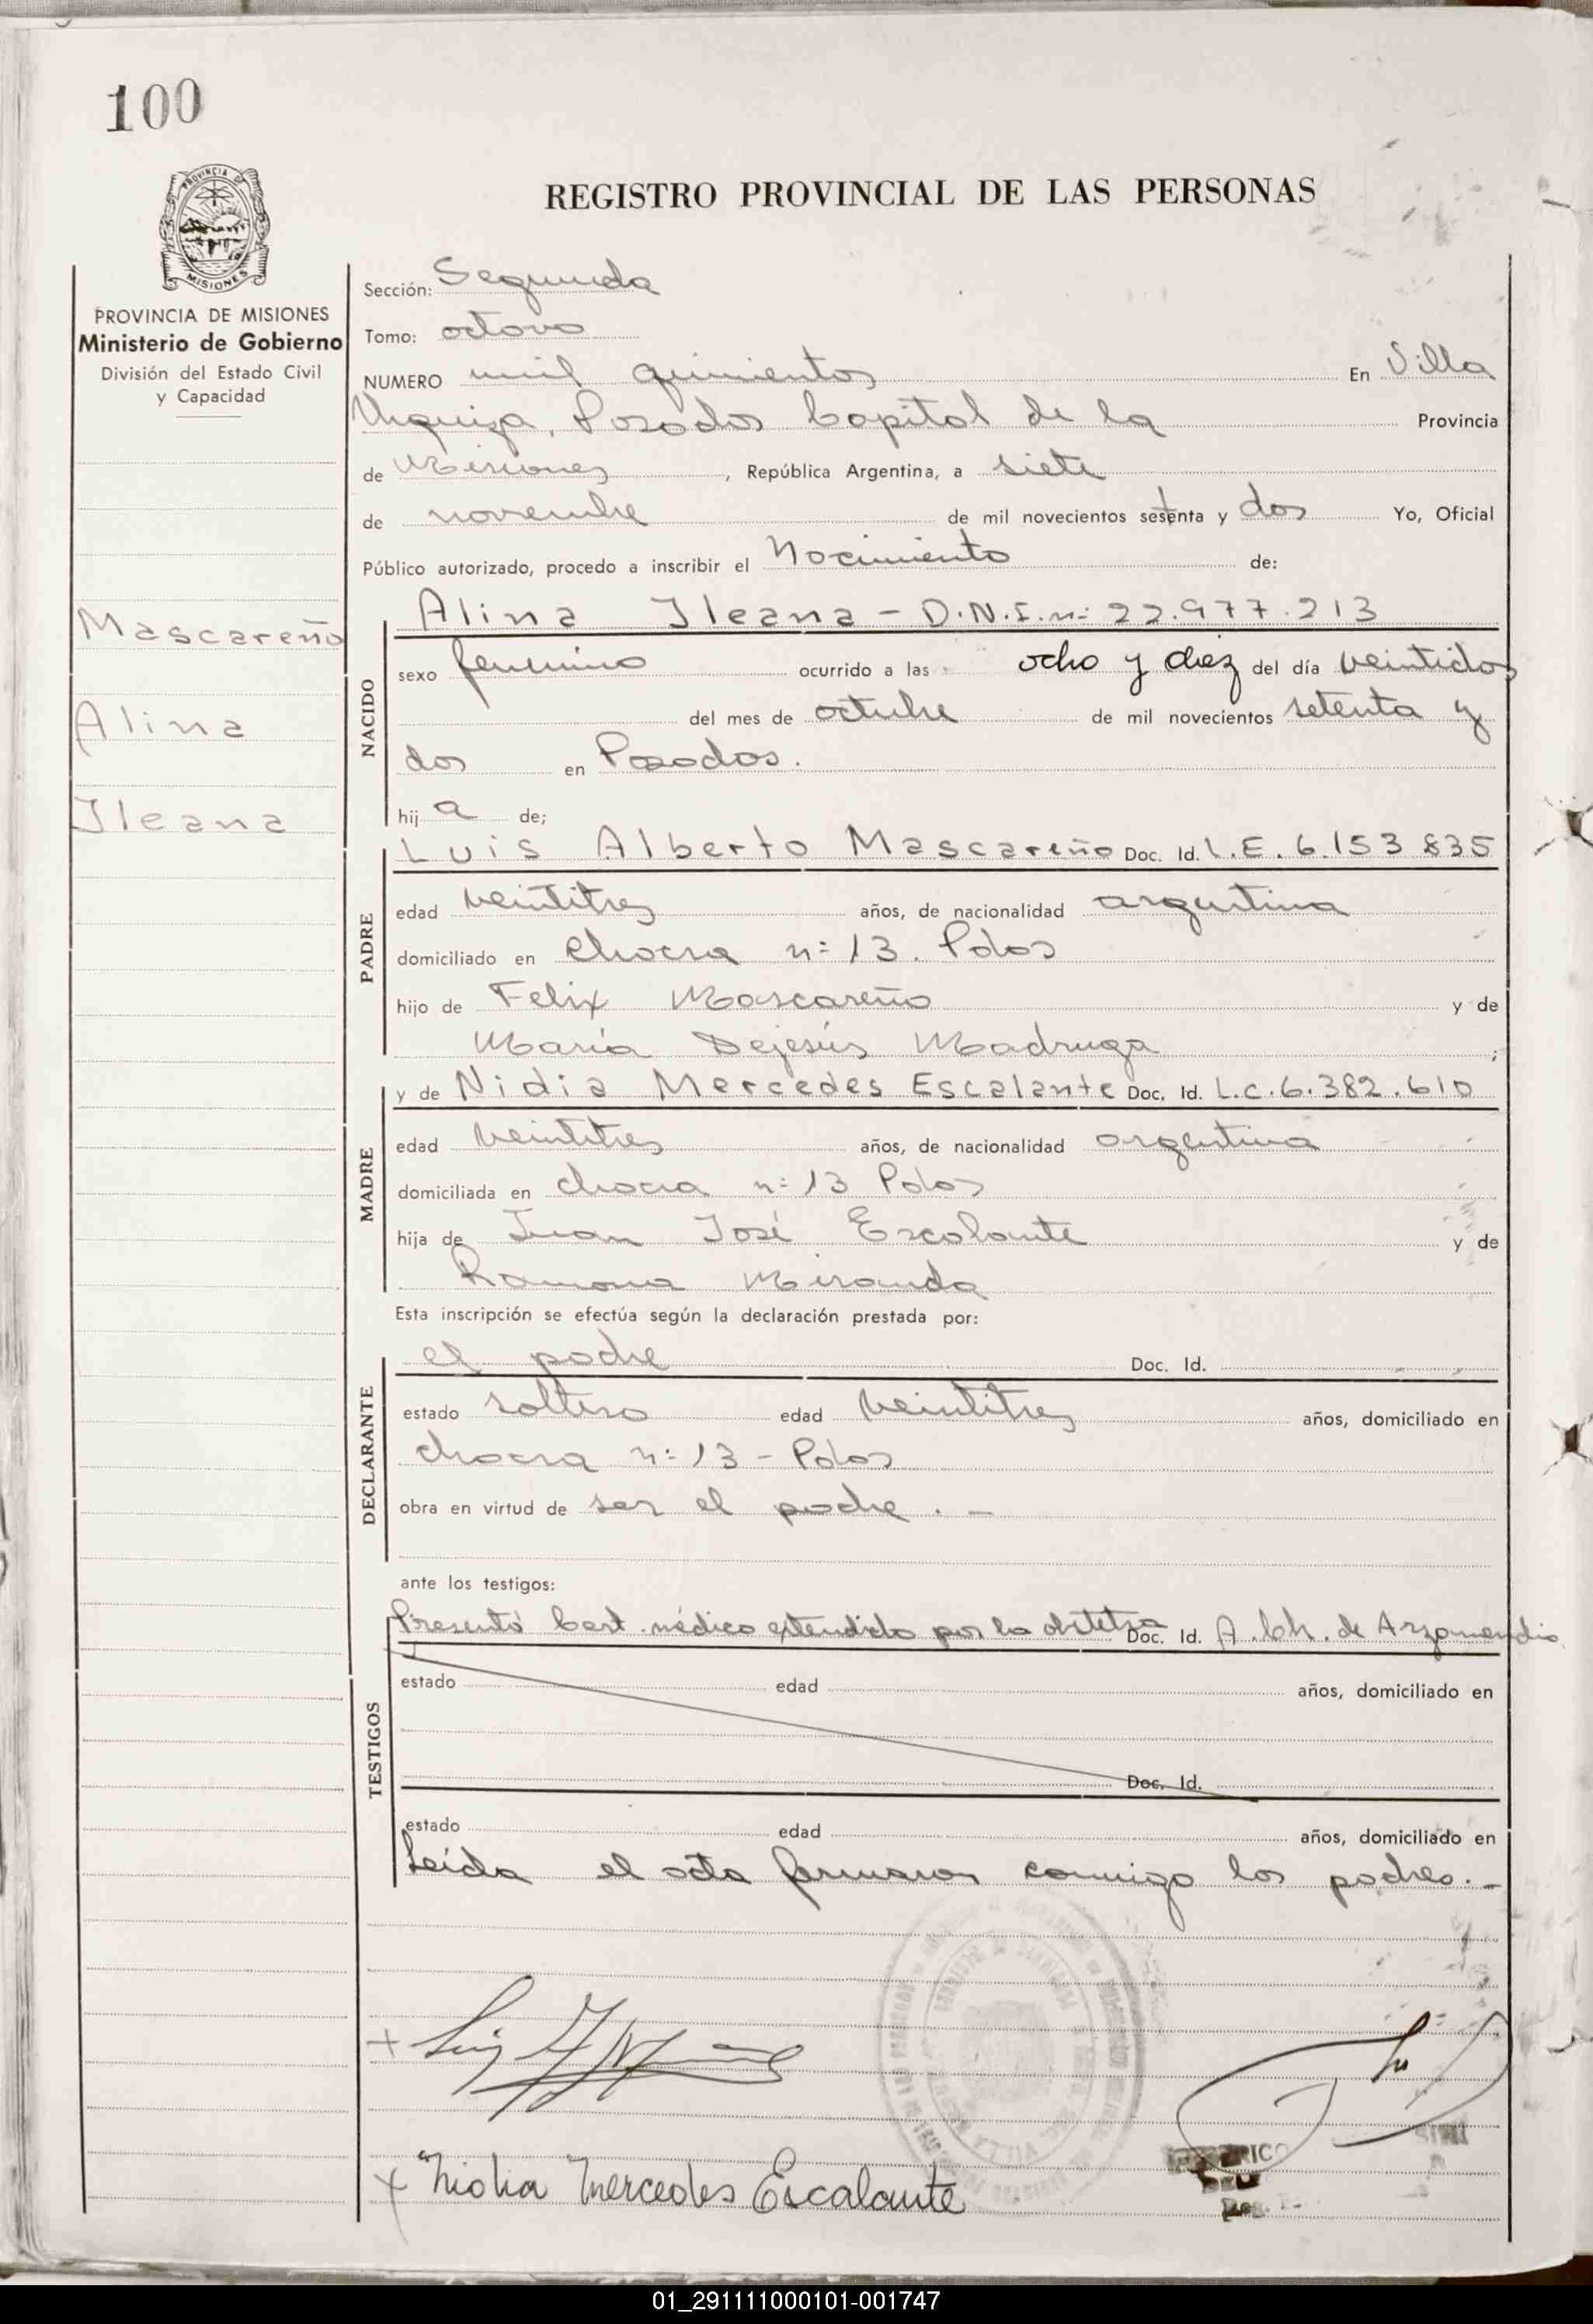 100
REGISTRO PROVINCIAL DE LAS PERSONAS
PROVINCIA DE MISIONES
MISIONES
PROVINCIA DE MISIONES
Ministerio de Gobierno
División del Estado Civil
y Capacidad
Mascareño
Alina
Ileana
Sección: Segunda
Tomo: octavo
NUMERO mil quinientos En Villa
Urquiza, Posadas Capital de la Provincia
de Misiones, República Argentina, a siete
de noviembre de mil novecientos setenta y dos Yo, Oficial
Público autorizado, procedo a inscribir el Nacimiento de:
NACIDO
Alina Ileana - D.N.I. nº 22.977.213
sexo femenino ocurrido a las ocho y diez del día veintidos
del mes de octubre de mil novecientos setenta y
dos en Posadas.
hij a de;
PADRE
Luis Alberto Mascareño Doc. Id. L.E. 6.153.835
edad veintitres años, de nacionalidad argentina
domiciliado en chacra nº 13. Pdas
hijo de Felix Mascareño y de
María Dejesús Madruga ;
MADRE
y de Nidia Mercedes Escalante Doc. Id. L.C. 6.382.610
edad veintitres años, de nacionalidad argentina
domiciliada en chacra nº 13 Pdas
hija de Juan José Escalante y de
Ramona Miranda
Esta inscripción se efectúa según la declaración prestada por:
DECLARANTE
el padre Doc. Id.
estado soltero edad veintitres años, domiciliado en
chacra nº 13 - Pdas
obra en virtud de ser el padre. -
ante los testigos:
TESTIGOS
Presentó Cert. médico extendido por la obstetra Doc. Id. A. Ch. de Arzamendia
estado edad años, domiciliado en
Doc. Id.
estado edad años, domiciliado en
Leída el acta firmaron conmigo los padres. -
x Nidia Mercedes Escalante
01_291111000101-001747